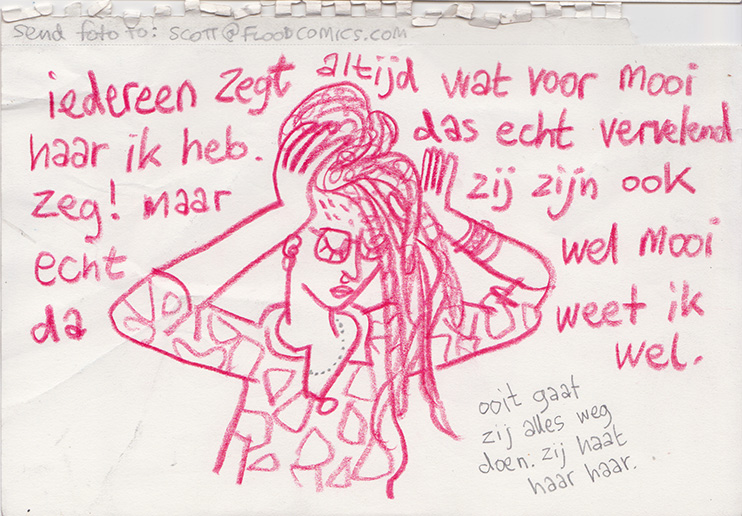 Send foto to: SCOTT@FLOODCOMICS.COM
iedereen zegt altijd wat voor mooi
haar ik heb. das echt vervelend
zeg! maar zij zijn ook
echt wel mooi
da weet ik
wel.
ooit gaat
zij alles weg
doen. zij haat
haar haar.